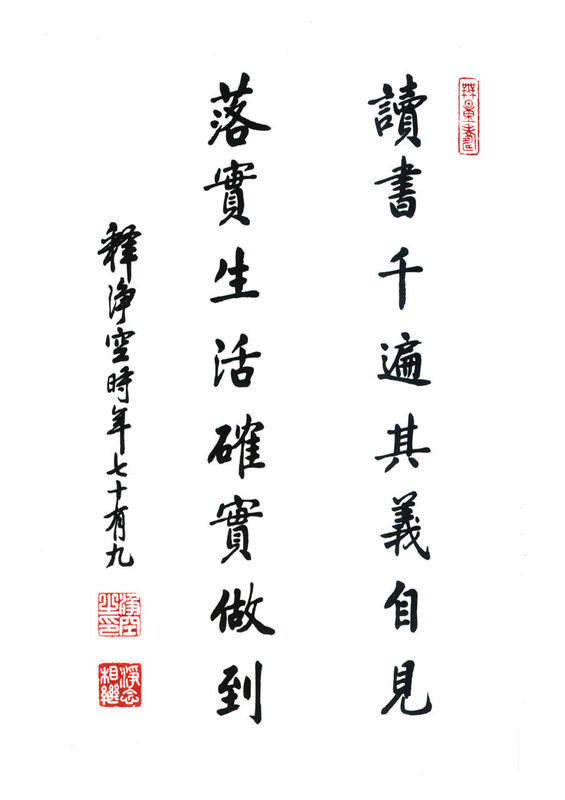 無量壽
讀書千遍其義自見
落實生活確實做到
釋淨空時年七十有九
淨空之印
淨念相繼